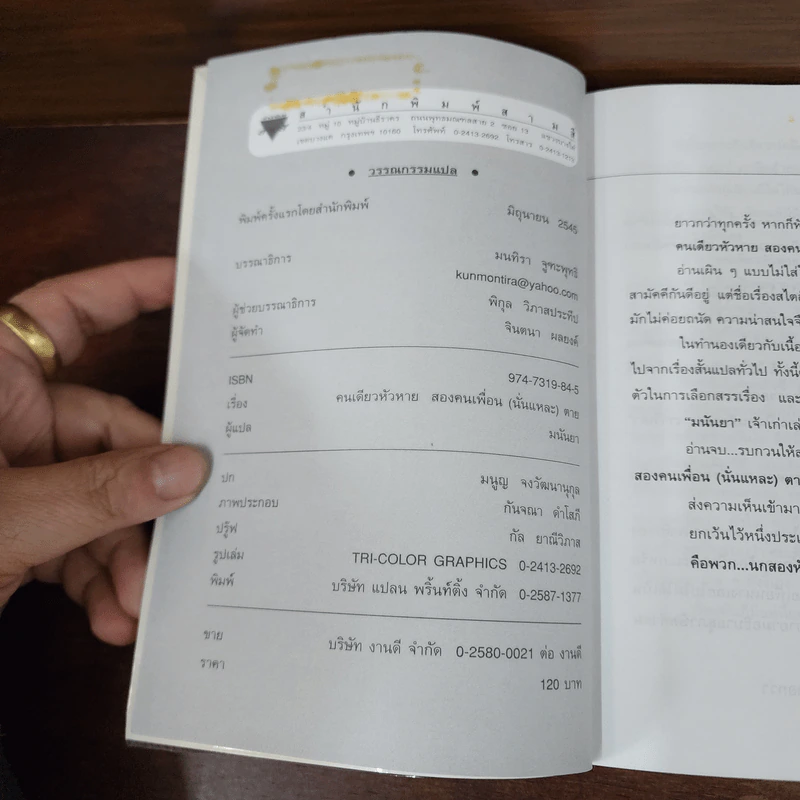 สำนักพิมพ์สามสี
555 หมู่ 10 หมู่บ้านธีราคา ถนนพุทธมณฑลสาย 2 ซอย 13
เขตบางแค กรุงเทพฯ 10160 โทรศัพท์ 0-2413-2692 โทรสาร 0-2413-1213
• วรรณกรรมแปล •
พิมพ์ครั้งแรกโดยสำนักพิมพ์ มิถุนายน 2545
บรรณาธิการ มนทิรา จูฑะพุทธิ
kunmontira@yahoo.com
ผู้ช่วยบรรณาธิการ พิกุล วิภาสประทีป
ผู้จัดทำ จินตนา ผลยงค์
ISBN 974-7319-84-5
เรื่อง คนเดียวหัวหาย สองคนเพื่อน (นั่นแหละ) ตาย
ผู้แปล มนันยา
ปก มนูญ จงวัฒนานุกุล
ภาพประกอบ กันจณา ดำโสภี
ปรู๊ฟ กัล ยาณีวิภาส
รูปเล่ม TRI-COLOR GRAPHICS 0-2413-2692
พิมพ์ บริษัท แปลน พริ้นท์ติ้ง จำกัด 0-2587-1377
ขาย บริษัท งานดี จำกัด 0-2580-0021 ต่อ งานดี
ราคา 120 บาท
ยาวกว่าทุกครั้ง หากก็
คนเดียวหัวหาย สองคน
อ่านเผิน ๆ แบบไม่ใส่
สามัคคีกันดีอยู่ แต่ชื่อเรื่องสไตล์
มักไม่ค่อยถนัด ความน่าสนใจจึ
ในทำนองเดียวกับเนื้อ
ไปจากเรื่องสั้นแปลทั่วไป ทั้งนี้
ตัวในการเลือกสรรเรื่อง และ
“มนันยา” เจ้าเก่าเล่
อ่านจบ...รบกวนให้ส
สองคนเพื่อน (นั่นแหละ) ตา
ส่งความเห็นเข้ามา
ยกเว้นไว้หนึ่งประเ
คือพวก...นกสองหั